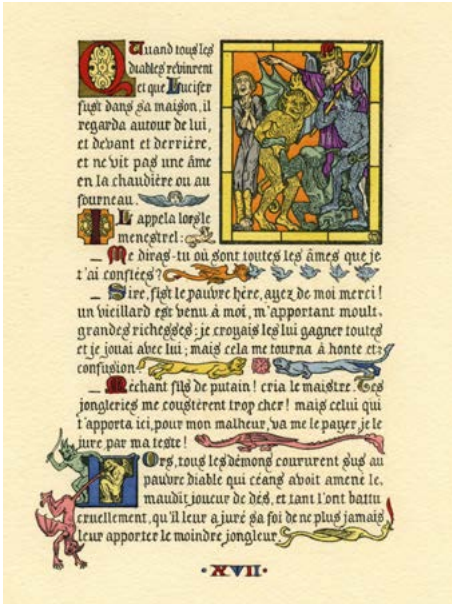 Quand tous les
diables revinrent
et que Lucifer
fust dans sa maison, il
regarda autour de lui,
et devant et derrière,
et ne vit pas une âme
en la chaudière ou au
fourneau.
Il appela lors le
menestrel:
— Me diras-tu où sont toutes les âmes que je
t'ai confiées?
— Sire, fist le pauvre hère, ayez de moi merci!
un vieillard est venu à moi, m'apportant moult
grandes richesses; je croyais les lui gagner toutes
et je jouai avec lui; mais cela me tourna à honte et
confusion.
— Méchant fils de putain! cria le maistre. Tes
jongleries me coustèrent trop cher! mais celui qui
t'apporta ici, pour mon malheur, va me le payer, je le
jure par ma teste!
Lors, tous les démons coururent sus au
pauvre diable qui céans avoit amené le
maudit joueur de dés, et tant l'ont battu
cruellement, qu'il leur a juré sa foi de ne plus jamais
leur apporter le moindre jongleur.
• XVII •